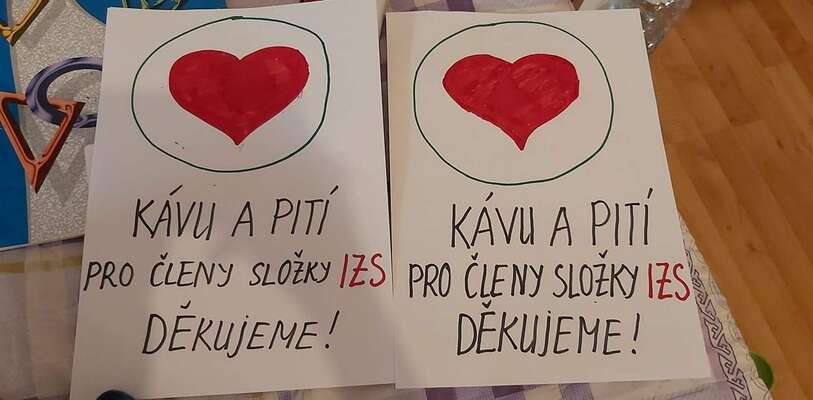 KÁVU A PITÍ
PRO ČLENY SLOŽKY IZS
DĚKUJEME!
KÁVU A PITÍ
PRO ČLENY SLOŽKY IZS
DĚKUJEME!